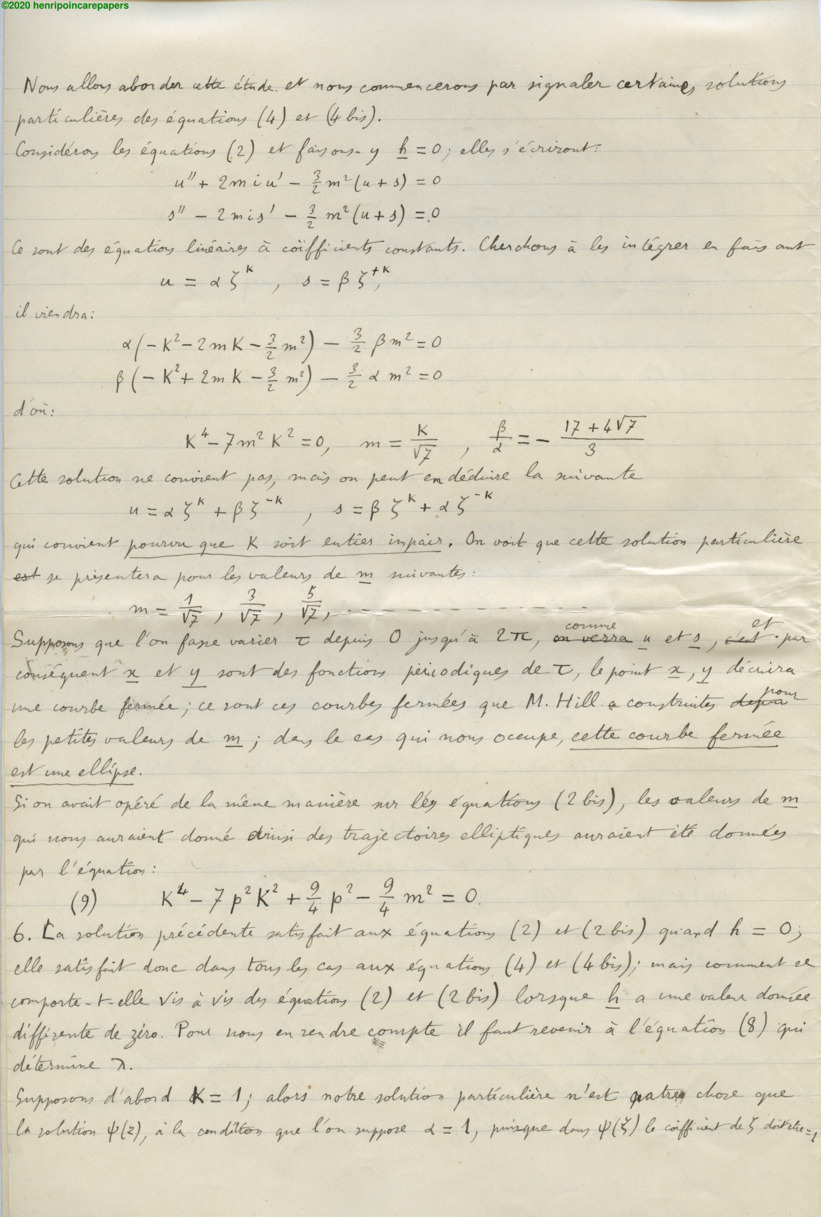 ©2020 henripoincarepapers
Nous allons aborder cette étude et nous commencerons par signaler certaines solutions
particulières des équations (4) et (4 bis).
Considérons les équations (2) et faisons-y h = 0; elles s'écriront:
u'' + 2miu' − 3/2 m² (u + s) = 0
s'' − 2mis' − 3/2 m² (u + s) = 0
Ce sont des équations linéaires à coëfficients constants. Cherchons à les intégrer en faisant
u = α ζ^K , s = β ζ^{+K},
il viendra:
α (−K² − 2mK − 3/2 m²) − 3/2 β m² = 0
β (−K² + 2mK − 3/2 m²) − 3/2 α m² = 0
d'où:
K⁴ − 7m² K² = 0, m = K/√7 , β/α = − (17 + 4√7)/3
Cette solution ne convient pas, mais on peut en déduire la suivante
u = α ζ^K + β ζ^{−K} , s = β ζ^K + α ζ^{−K}
qui convient pourvu que K soit entier impair. On voit que cette solution particulière
est se présentera pour les valeurs de m suivantes:
m = 1/√7 , 3/√7 , 5/√7 , . – – – – – – –
Supposons que l'on fasse varier τ depuis 0 jusqu'à 2π, on verra comme u et s, c'est et par
conséquent x et y sont des fonctions périodiques de τ, le point x, y décrira
une courbe fermée; ce sont ces courbes fermées que M. Hill a construites pour
les petites valeurs de m; dans le cas qui nous occupe, cette courbe fermée
est une ellipse.
Si on avait opéré de la même manière sur les équations (2 bis), les valeurs de m
qui nous auraient donné ainsi des trajectoires elliptiques auraient été données
par l'équation:
(9) K⁴ − 7p² K² + 9/4 p² − 9/4 m² = 0.
6. La solution précédente satisfait aux équations (2) et (2 bis) quand h = 0;
elle satisfait donc dans tous les cas aux équations (4) et (4 bis); mais comment se
comporte-t-elle vis à vis des équations (2) et (2 bis) lorsque h a une valeur donnée
différente de zéro. Pour nous en rendre compte il faut revenir à l'équation (8) qui
détermine λ.
Supposons d'abord K = 1; alors notre solution particulière n'est autre chose que
la solution ψ(z), à la condition que l'on suppose α = 1, puisque dans ψ(ζ) le coëfficient de ζ doit être = 1